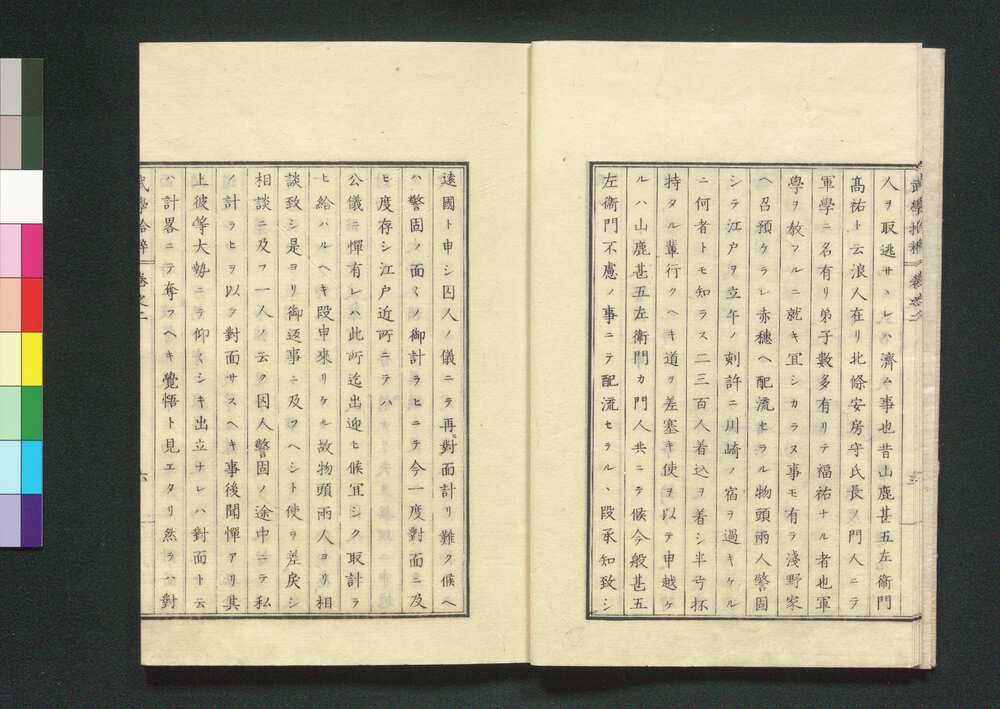 人ヲ取逃サヽレハ濟ム事也昔山鹿甚五左衞門
髙祐ト云浪人在リ北條安房守氏長ノ門人ニテ
軍學ニ名有リ弟子數多有リテ福祐ナル者也軍
學ヲ敎フルニ就キ宜シカラヌ事モ有ラ淺野家
ヘ召預ケラレ赤穗ヘ配流セラル物頭兩人警固
シテ江戸ヲ立午ノ刺許ニ川崎ノ宿ヲ過キケル
ニ何者トモ知ラス二三百人着込ヲ着シ半弓抔
持タル輩行クヘキ道ヲ差塞キ使ヲ以テ申越ケ
ルハ山鹿甚五左衞門カ門人共ニテ候今般甚五
左衞門不慮ノ事ニテ配流セラル丶段承知致シ
遠國ト申シ囚人ノ儀ニテ再對面計リ難ク候ヘ
ハ警固ノ面〱ノ御計ラヒニテ今一度對面ニ及
ヒ度存シ江戸近所ニテハ
公儀ニ憚有レハ此所迄出迎ヒ候宜シク取計ラ
ヒ給ハルヘキ段申來リケル故物頭兩人ヨリ相
談致シ是ヨリ御返事ニ及フヘシト使ヲ差戾シ
相談ニ及フ一人ノ云ク囚人警固ノ途中ニテ私
ノ計ラヒヲ以テ對面サスヘキ事後聞憚アリ其
上彼等大勢ニテ仰〱シキ出立ナレハ對面ト云
ハ計畧ニテ奪フヘキ覺悟ト見エタリ然ラハ對
武學拾粹 卷之二 六